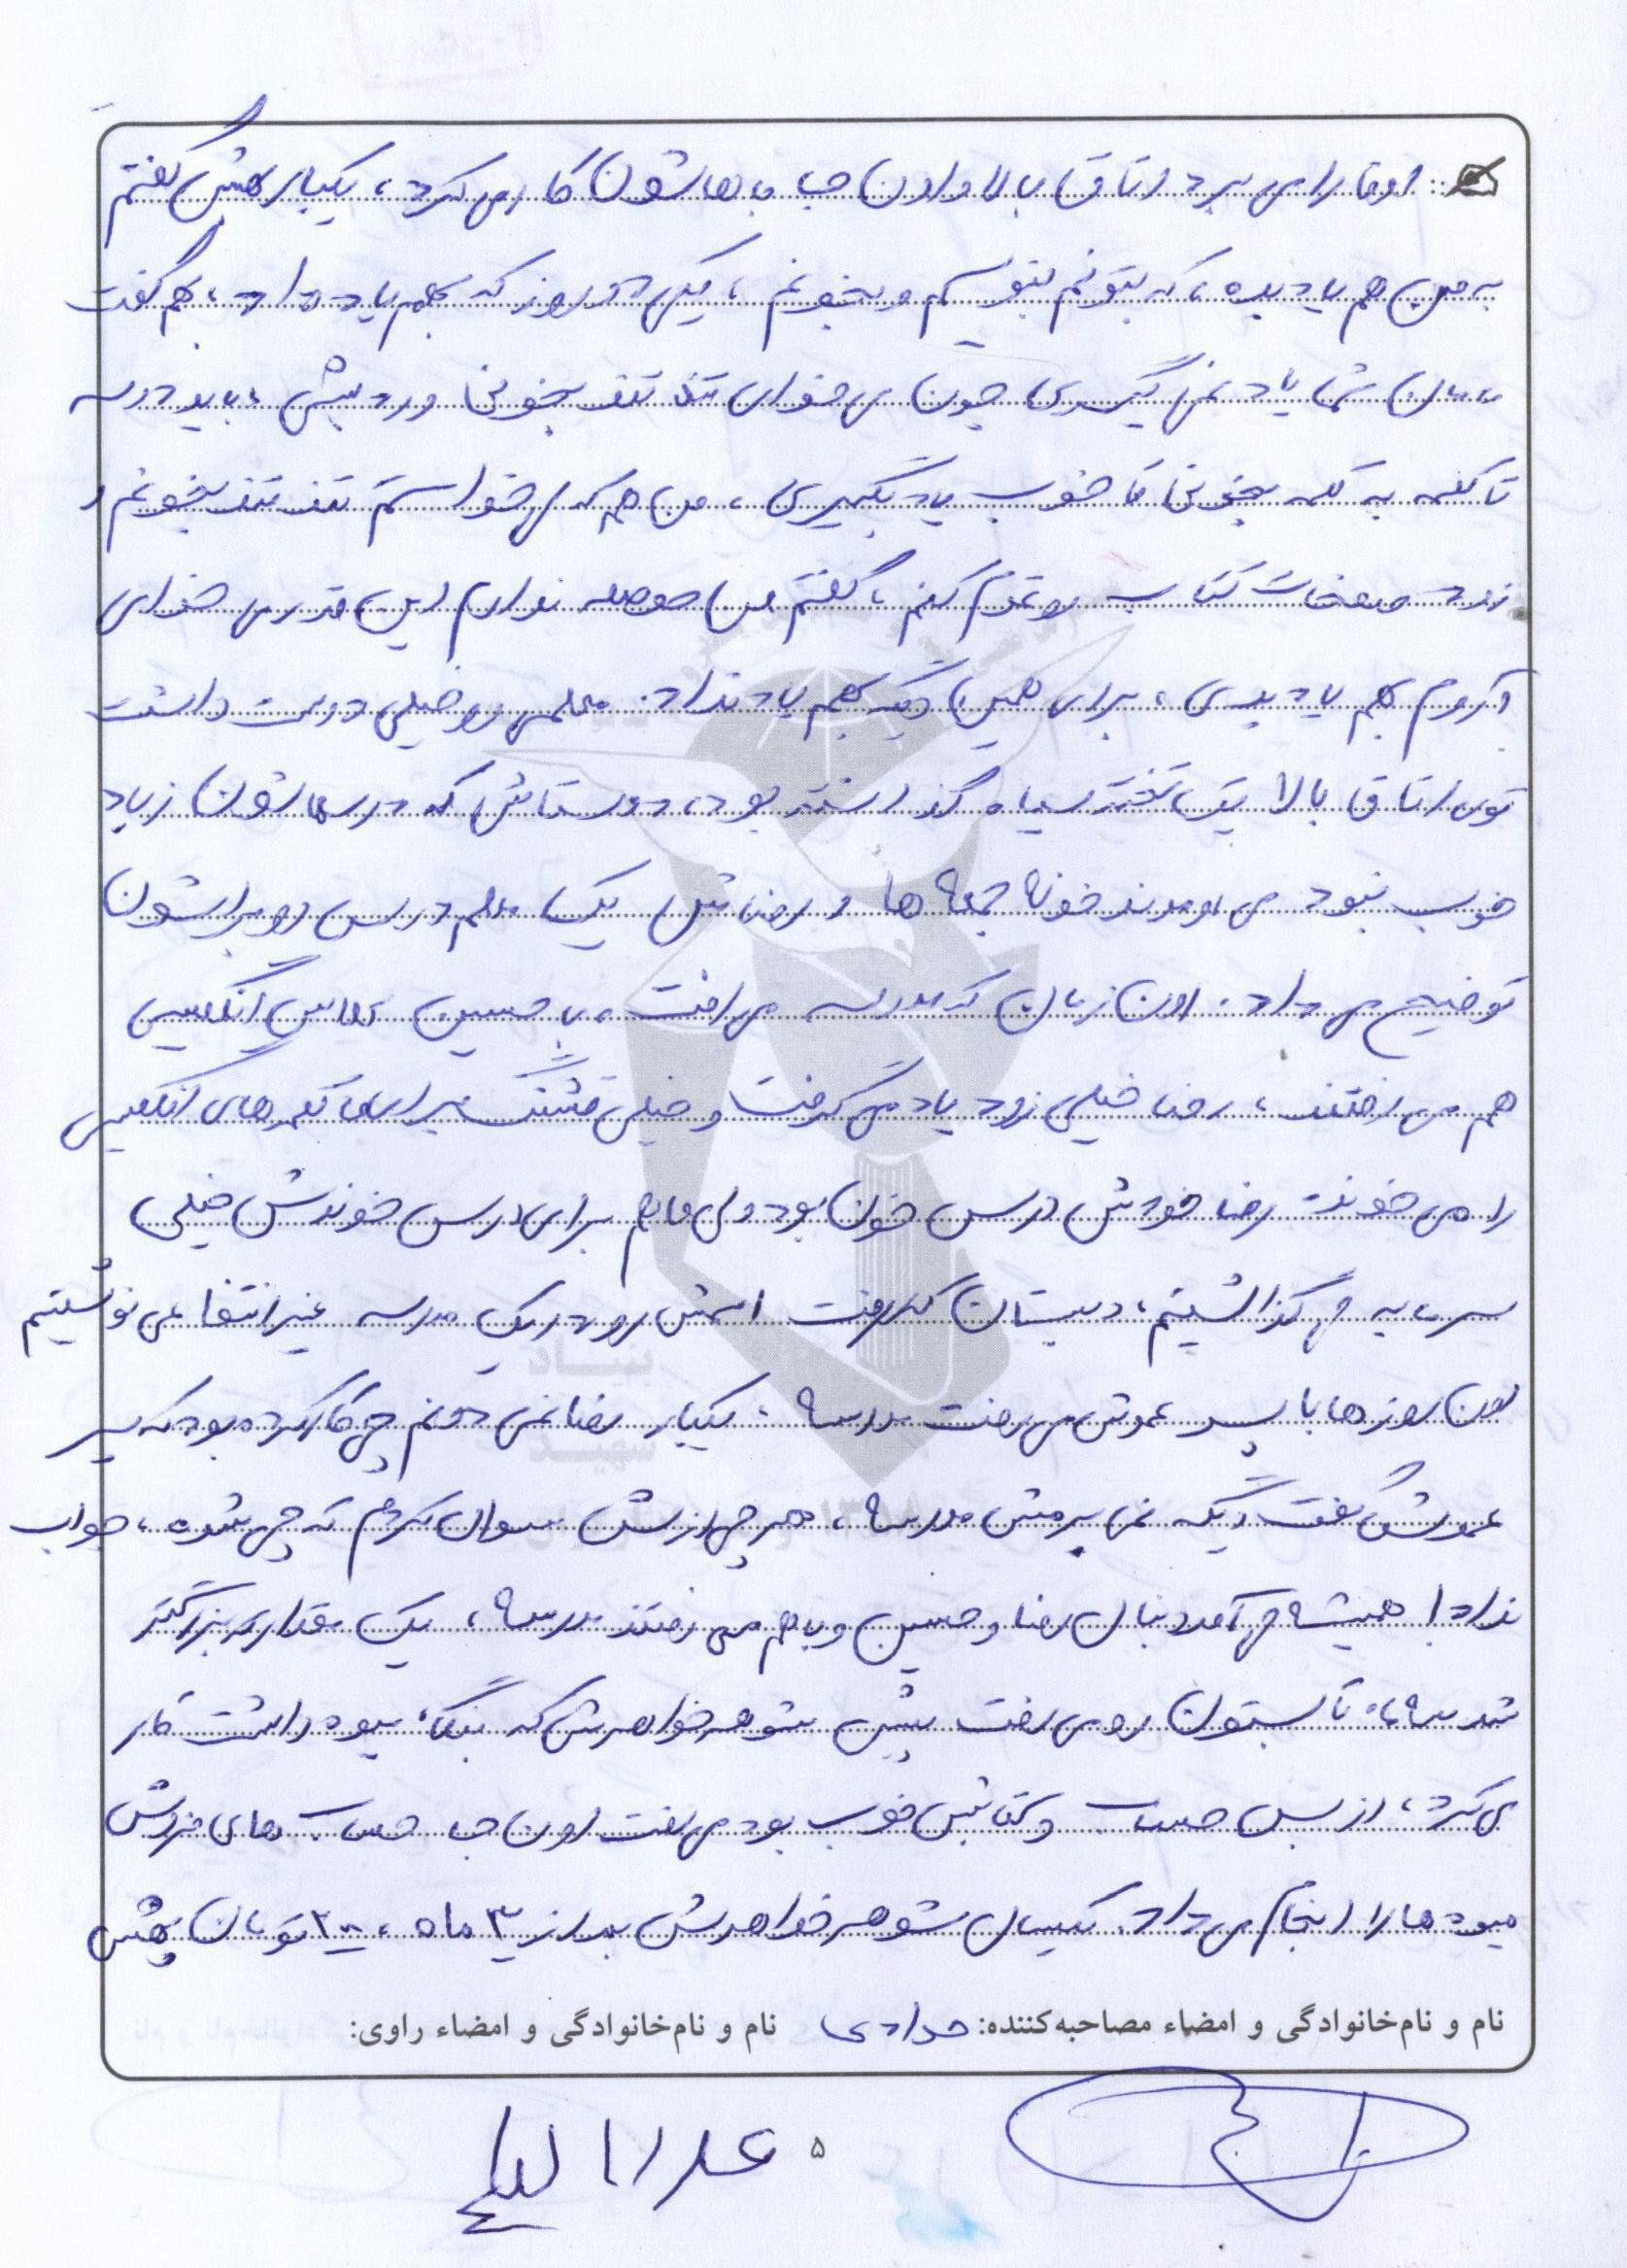 اونا را می برد اتاق بالا و اون جا باهاشون کار می کرد، یکبار بهش گفتم
به من هم یاد بده، که بتونم بنویسم و بخونم، یکی دو روز که بهم یاد داد، بهم گفت
مامان شما یاد نمی گیری چون می خوای تند تند بخونی و رد بشی، باید درسه
تا کلمه به کلمه بخونی تا خوب یاد بگیری، من هم که می خواستم تند تند بخونم و
زود صفحات کتاب رو تموم کنم، گفتم من حوصله ندارم این قدر می خوای
آروم بهم یاد بدی، برای همین دیگه بهم یاد نداد. معلمی رو خیلی دوست داشت
توی اتاق بالا یک تخته سیاه گذاشته بود، دوستاش که درسهاشون زیاد
خوب نبود می اومدند خونه جمعه ها و رضا مثل یک معلم درس رو براشون
توضیح می داد. اون زمان که مدرسه می رفت، با حسین کلاس انگلیسی
هم می رفتند، رضا خیلی زود یاد می گرفت و خیلی قشنگ برای ما کلمه های انگلیسی
را می خوند رضا خودش درس خون بود ولی ما هم برای درس خوندش خیلی
سرمایه می گذاشتیم، دبستان که رفت اسمش رو در یک مدرسه غیرانتفاعی نوشتیم
اون روزها با پسر عموش می رفت مدرسه، یکبار رضا نمی دونم چی کار کرده بود که پسر
عموش گفت دیگه نمی برمش مدرسه، هر چی ازش سوال کردم که چی شده، جواب
نداد! همیشه می آمد دنبال رضا و حسین و با هم می رفتند مدرسه، یک مقداری بزرگتر
شد سه ماه تابستون رو می رفت پیش شوهر خواهرش که بنگاه میوه داشت کار
می کرد، از بس حساب و کتابش خوب بود می رفت اون جا حساب های فروش
میوه ها را انجام می داد. یکسال شوهر خواهرش بعد از ۳ ماه، ۲۰۰ تومان بهش
نام و نام‌خانوادگی و امضاء مصاحبه‌کننده: حدادی نام و نام‌خانوادگی و امضاء راوی:
۵